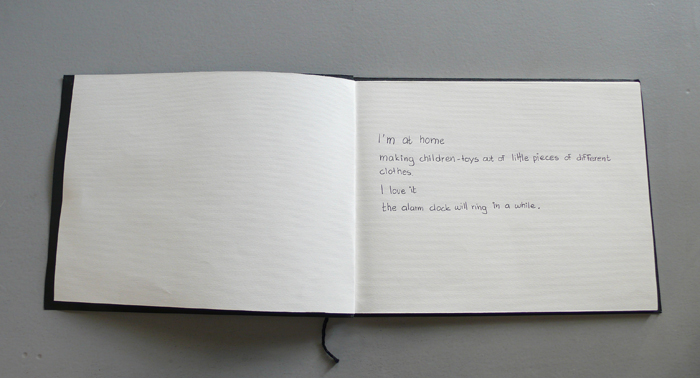 I'm at home
making children-toys out of little pieces of different
clothes
I love it
the alarm clock will ring in a while.